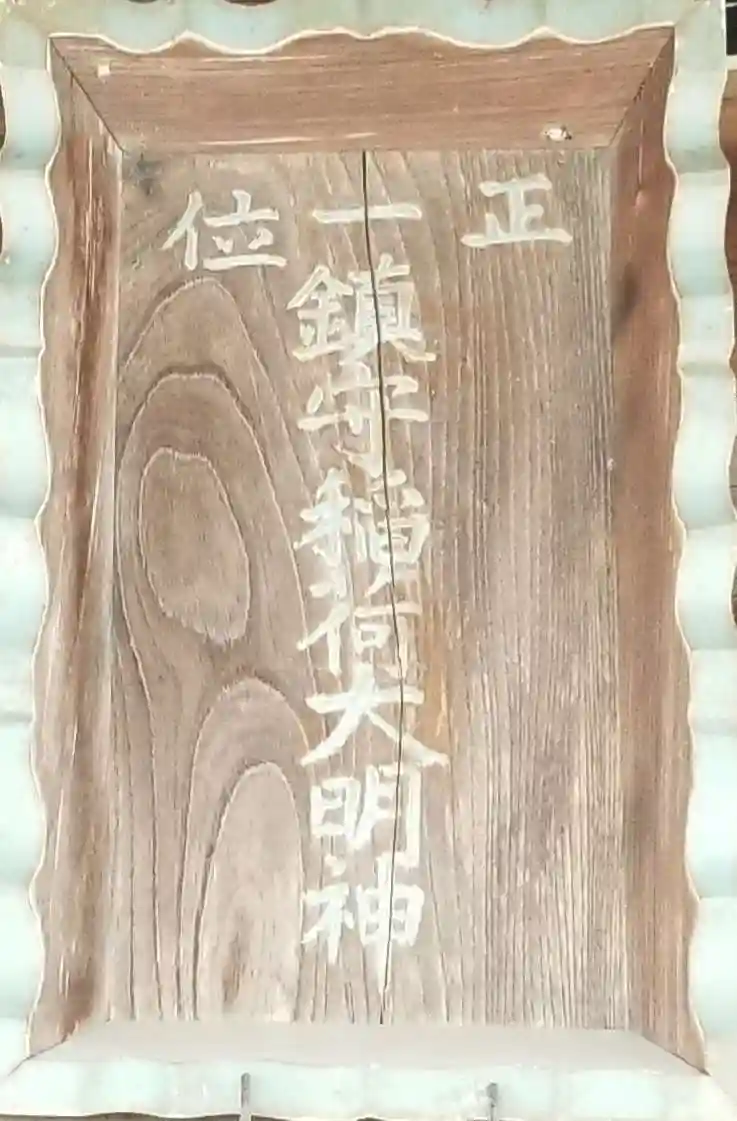 正一位
鎮守稲荷大明神